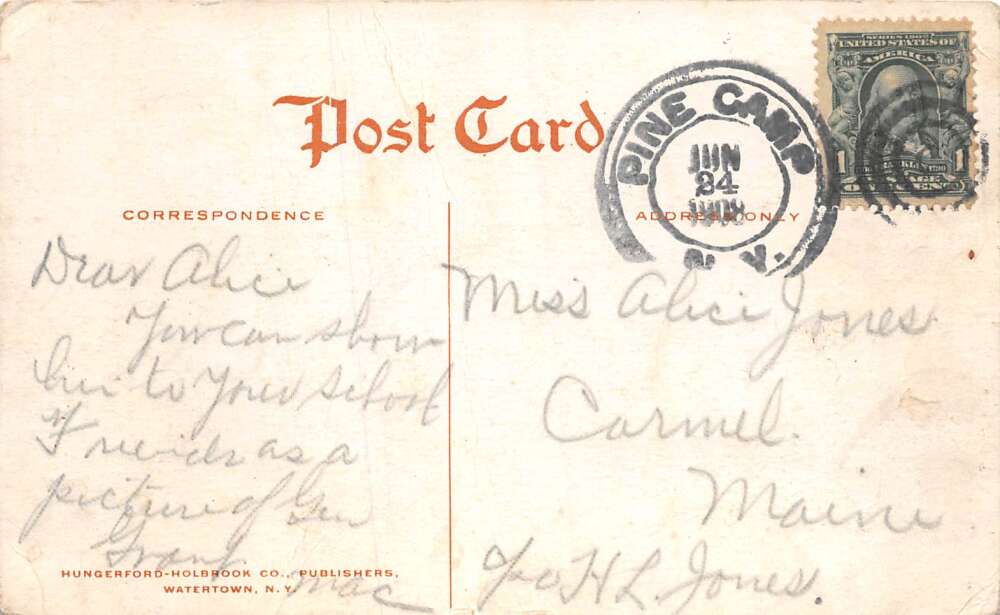 Post Card
CORRESPONDENCE
ADDRESS ONLY
PINE CAMP
JUN
24
1908
N.Y.
SERIES 1902
UNITED STATES OF
AMERICA
1 FRANKLIN 1
ONE CENT
Dear Alice
You can show
him to your school
Friends as a
picture of Gen
Grant.
Mac
Miss Alice Jones
Carmel.
Maine
c/o H L Jones.
HUNGERFORD-HOLBROOK CO., PUBLISHERS,
WATERTOWN, N.Y.